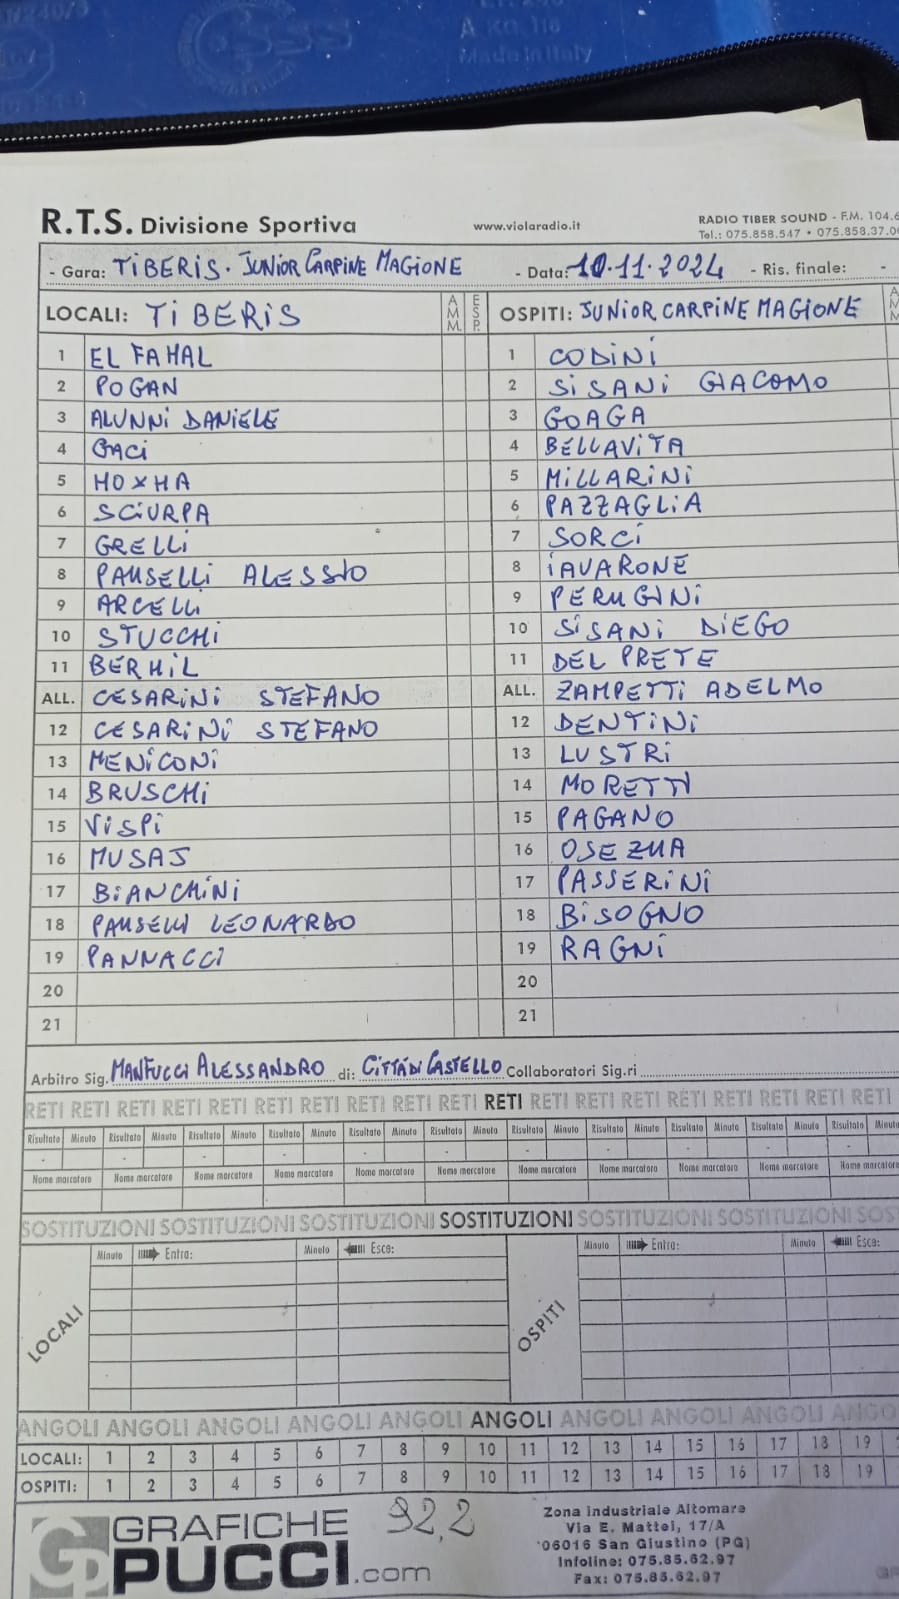 R.T.S. Divisione Sportiva www.violaradio.it RADIO TIBER SOUND - F.M. 104.6
Tel.: 075.858.547 • 075.858.37.0
- Gara: TIBERIS. JUNIOR CARPINE MAGIONE - Data: 10.11.2024 - Ris. finale: -
LOCALI: TIBERIS AMM. ESP. OSPITI: JUNIOR CARPINE MAGIONE
1 EL FAHAL 1 CODINI
2 POGAN 2 SISANI GIACOMO
3 ALUNNI DANIELE 3 GOAGA
4 GACI 4 BELLAVITA
5 HOXHA 5 MILLARINI
6 SCIURPA 6 PAZZAGLIA
7 GRELLI 7 SORCI
8 PAUSELLI ALESSIO 8 IAVARONE
9 ARCELLI 9 PERUGINI
10 STUCCHI 10 SISANI DIEGO
11 BERHIL 11 DEL PRETE
ALL. CESARINI STEFANO ALL. ZAMPETTI ADELMO
12 CESARINI STEFANO 12 DENTINI
13 MENICONI 13 LUSTRI
14 BRUSCHI 14 MORETTI
15 VISPI 15 PAGANO
16 MUSAJ 16 OSEZUA
17 BIANCHINI 17 PASSERINI
18 PAUSELLI LEONARDO 18 BISOGNO
19 PANNACCI 19 RAGNI
20 20
21 21
Arbitro Sig. MANFUCCI ALESSANDRO di: CITTÀ DI CASTELLO Collaboratori Sig.ri
RETI RETI RETI RETI RETI RETI RETI RETI RETI RETI RETI RETI RETI RETI RETI RETI RETI RETI RETI
Risultato Minuto Risultato Minuto Risultato Minuto Risultato Minuto Risultato Minuto Risultato Minuto Risultato Minuto Risultato Minuto Risultato Minuto Risultato Minuto Risultato Minuto
Nome marcatore Nome marcatore Nome marcatore Nome marcatore Nome marcatore Nome marcatore Nome marcatore Nome marcatore Nome marcatore Nome marcatore Nome marcatore
SOSTITUZIONI SOSTITUZIONI SOSTITUZIONI SOSTITUZIONI SOSTITUZIONI SOSTITUZIONI SOS
Minuto Entra: Minuto Esce: Minuto Entra: Minuto Esce:
LOCALI OSPITI
ANGOLI ANGOLI ANGOLI ANGOLI ANGOLI ANGOLI ANGOLI ANGOLI ANGOLI ANGO
LOCALI: 1 2 3 4 5 6 7 8 9 10 11 12 13 14 15 16 17 18 19
OSPITI: 1 2 3 4 5 6 7 8 9 10 11 12 13 14 15 16 17 18 19
GRAFICHE PUCCI.com
92,2
Zona Industriale Altomare
Via E. Mattei, 17/A
06016 San Giustino (PG)
Infoline: 075.85.62.97
Fax: 075.85.62.97